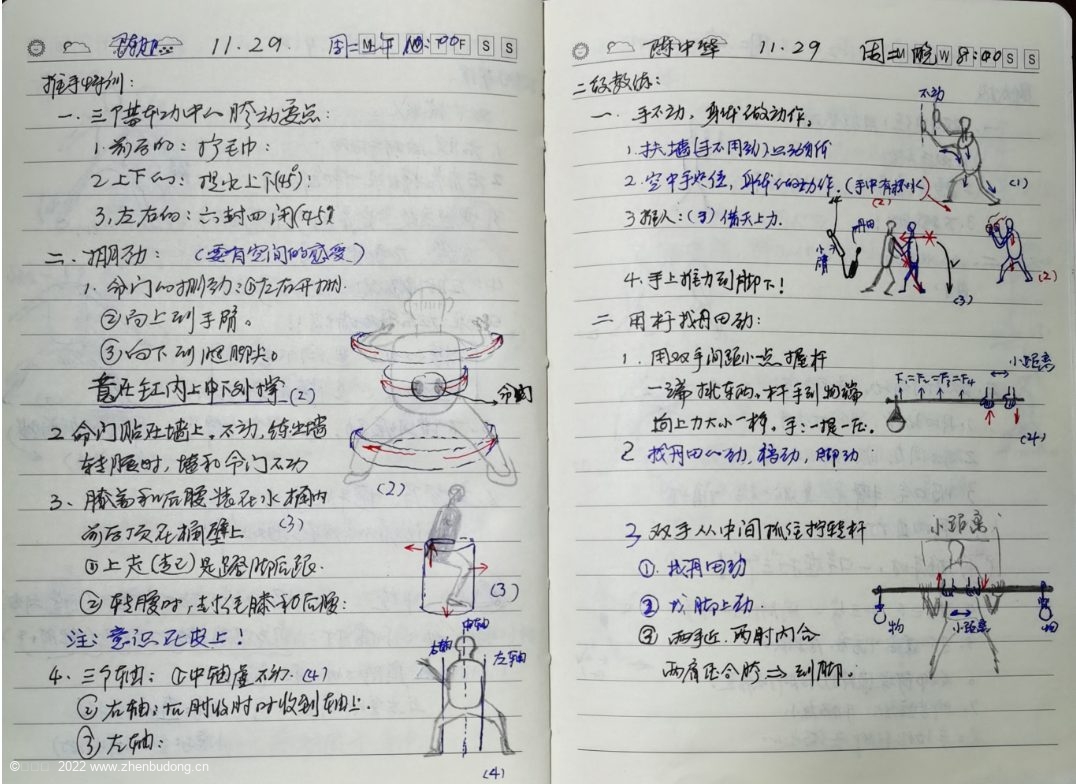 11.29. 周二上午10:00
推手特训:
一. 三个基本功中心胯动要点:
1. 前后的: 拧毛巾:
2 上下的: 提水上下(45°)
3, 左右的: 六封四闭(45°)
二. 掤劲: (要有空间的感受)
1. 命门的掤劲: ①左右开掤.
②向上到手臂。
③向下到腿脚尖。
蓄在缸内上中下外撑 (2)
2 命门贴在墙上。不动, 转出墙
转腰时, 墙和命门不动
3、膝盖和后腰装在水桶内
前后顶在桶壁上 (3)
①上走(走己)是蹬脚后跟.
②转腰时, 膝和后腰:
注: 意识在皮上!
4. 三个轴: ①中轴虚不动. (4)
②右轴: 右肘收肘时收到轴上.
③左轴:
命门
(2)
(3)
右轴
中轴
左轴
(4)
© 2022 www.zhenbudong.cn
陈中华 11.29 周二晚 8:00
二级教练:
一. 手不动, 身体做动作,
1. 扶墙(手不用劲)只动身体
2. 空中手定位, 身体做动作. (手中有杯水)
3 推人: (手) 借天上力.
4. 手上推力到脚下!
不动
(1)
(2)
丹田
(3)
(2)
二 用杆找丹田动:
1. 用双手间距小点握杆
一端挑东西。杆手到物端
向上力大小一样。手: 一提一压.
2 找丹田心动, 裆动, 脚动
F₁=F₂=F₃=F₄
小距离
(4)
3 双手从中间抓住拧转杆
①. 找丹田动
②. 找脚上动.
③ 两手近. 两肘内合
两肩压合胯 ⇒ 到脚.
小距离
物
小距离
物